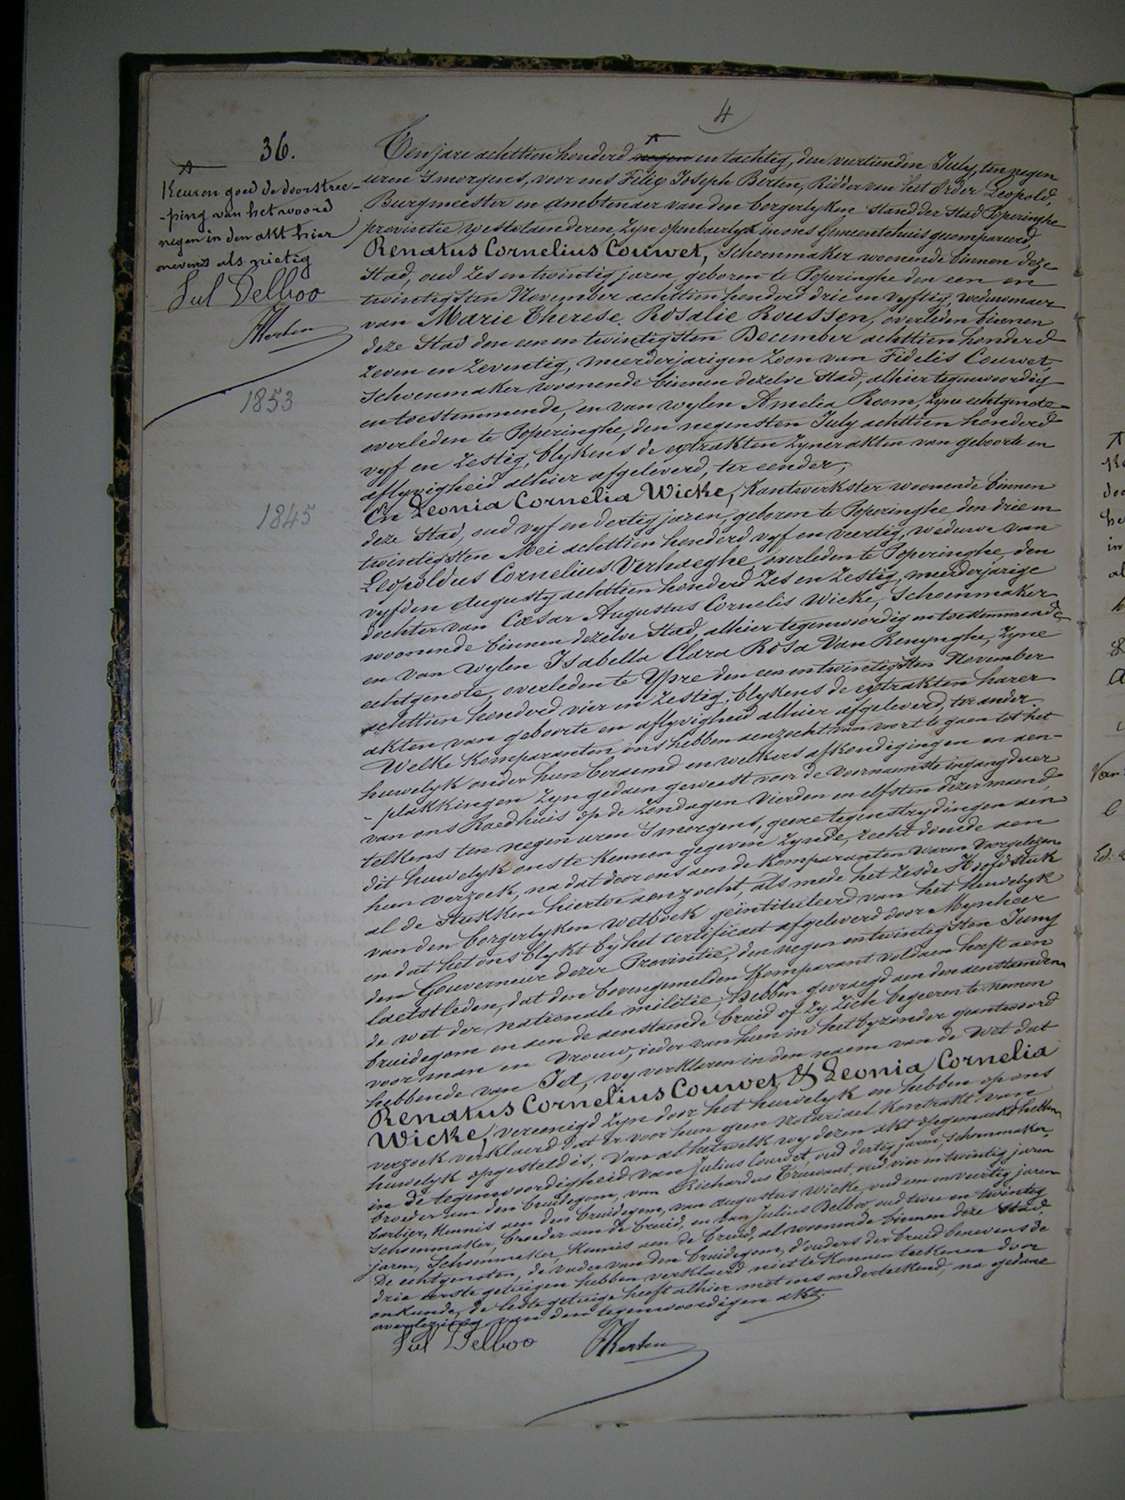 4
36.
Keuren goed de doorstree-
-ping van het woord
negen in den akt hier
nevens als nietig
Jul Delboo
FBerten
1853
1845
Ten jare achttien honderd negen en tachtig, den veertienden July, ten negen
uren 's morgens, voor ons Felix Joseph Berten, Ridder van het Order Leopold,
Burgmeester en ambtenaer van den borgerlyken stand der Stad Poperinghe
provintie Westvlaenderen, zyn openbaerlyk in ons Gemeentehuis gecompareerd,
Renatus Cornelius Couwet, Schoenmaker woonende binnen deze
Stad, oud zes en twintig jaren, geboren te Poperinghe den een en
twintigsten November achttien honderd drie en vyftig, weduwnaer
van Marie Therese Rosalie Roussen, overleden binnen
deze Stad den een en twintigsten December achttien honderd
zeven en zeventig, meerderjarigen zoon van Fidelis Couwet,
Schoenmaker woonende binnen dezelve Stad, alhier tegenwoordig
en toestemmende, en van wylen Amelia Room, zyne echtgenote
overleden te Poperinghe, den negensten July achttien honderd
vyf en zestig, blykens de extrakten zyner akten van geboorte en
aflyvigheid alhier afgeleverd, ter eender,
En Leonia Cornelia Wicke, Kantwerkster woonende binnen
deze Stad, oud vyf en dertig jaren, geboren te Poperinghe den drie en
twintigsten Mei achttien honderd vyf en veertig, weduwe van
Leopoldus Cornelius Verhaeghe, overleden te Poperinghe, den
vyfden Augusty achttien honderd zes en zestig, meerderjarige
dochter van Cæsar Augustus Cornelis Wicke, Schoenmaker
woonende binnen dezelve Stad, alhier tegenwoordig en toestemmende
en van wylen Isabella Clara Rosa Van Renynghe, zyne
echtgenote, overleden te Ypre den een en twintigsten November
achttien honderd vier en zestig, blykens de extrakten harer
akten van geboorte en aflyvigheid alhier afgeleverd, ter ander.
Welke Komparanten ons hebben aenzocht van voort te gaen tot het
huwelyk onder hun beraemd en welkers afkondigingen en aen-
-plakkingen zyn gedaen geweest voor de voornaemste ingangdeur
van ons Raedhuis op de Zondagen vierden en elfsten dezer maend,
telkens ten negen uren 's morgens, geene tegenstrydingen aen
dit huwelyk ons te kennen gegeven zynde, recht doende aen
hun verzoek, na dat door ons aen de Komparanten waren voorgelezen
al de Stukken hiertoe aenzocht, als mede het zesde Hoofdstuk
van den borgerlyken Wetboek geïntituleerd van het huwelyk
en dat het ons blykt by het certificaet afgeleverd door Mynheer
den Gouverneur dezer Provintie, den negen en twintigsten Juny
laetstleden, dat den bovengemelden Komparant voldaen heeft aen
de wet der nationale militie; Hebben gevraegd aen den aenstaenden
bruidegom en aen de aenstaende bruid of zy zich begeeren te nemen
voor man en vrouw, ieder van hun in het byzonder geantwoord
hebbende van Ja, wy verklaren in den naem van de Wet dat
Renatus Cornelius Couwet & Leonia Cornelia
Wicke, vereenigd zyn door het huwelyk en hebben op ons
verzoek verklaerd dat er voor hun geen Notariael Kontrakt van
huwelyk opgesteld is, van al hetwelk wy dezen akt opgemaekt hebben
in de tegenwoordigheid van Julius Couwet, oud dertig jaren, schoenmaker,
broeder aen den bruidegom, van Richardus Truwant, oud vier en twintig jaren
barbier, kennis aen den bruidegom, van Augustus Wicke, oud een en veertig jaren
Schoenmaker, broeder aen de bruid, en van Julius Delboo, oud twee en twintig
jaren, Schoenmaker, kennis aen de bruid, al woonende binnen deze Stad.
De echtgenoten, de vader van den bruidegom, d'ouders der bruid benevens de
drie eerste getuigen hebben verklaerd niet te konnen teekenen door
onkunde, de leste getuige heeft alhier met ons onderteekend, na gedane
overlezing van den tegenwoordigen akt.
Jul Delboo FBerten